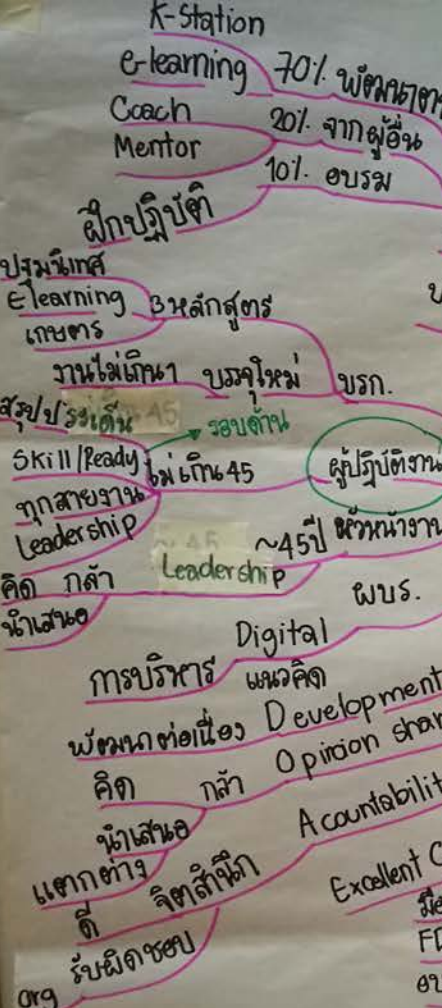 K-Station
e-learning 70% พัฒนาตา
Coach 20% จากผู้อื่น
Mentor 10% อบรม
ฝึกปฏิบัติ
ปฐมนิเทศ
E-learning 3 หลักสูตร
เกษตร
งานไม่เกิน 1 บรรจุใหม่ บรก.
สรุปประเด็น รอบด้าน
Skill/Ready ไม่เกิน 45 ผู้ปฏิบัติงาน
ทุกสายงาน
Leadership ~45ปี หัวหน้างาน
คิด กล้า Leadership
นำเสนอ ผบร.
Digital
การบริหาร แนวคิด
พัฒนาต่อเนื่อง Development
คิด กล้า Opinion shar
นำเสนอ Acountabilit
แตกต่าง
ดี จิตสำนึก Excellent C
org รับผิดชอบ FD